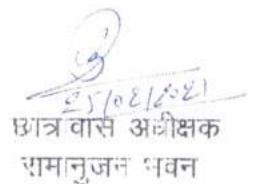 25/02/2021
छात्रावास अधीक्षक
रामानुजन भवन